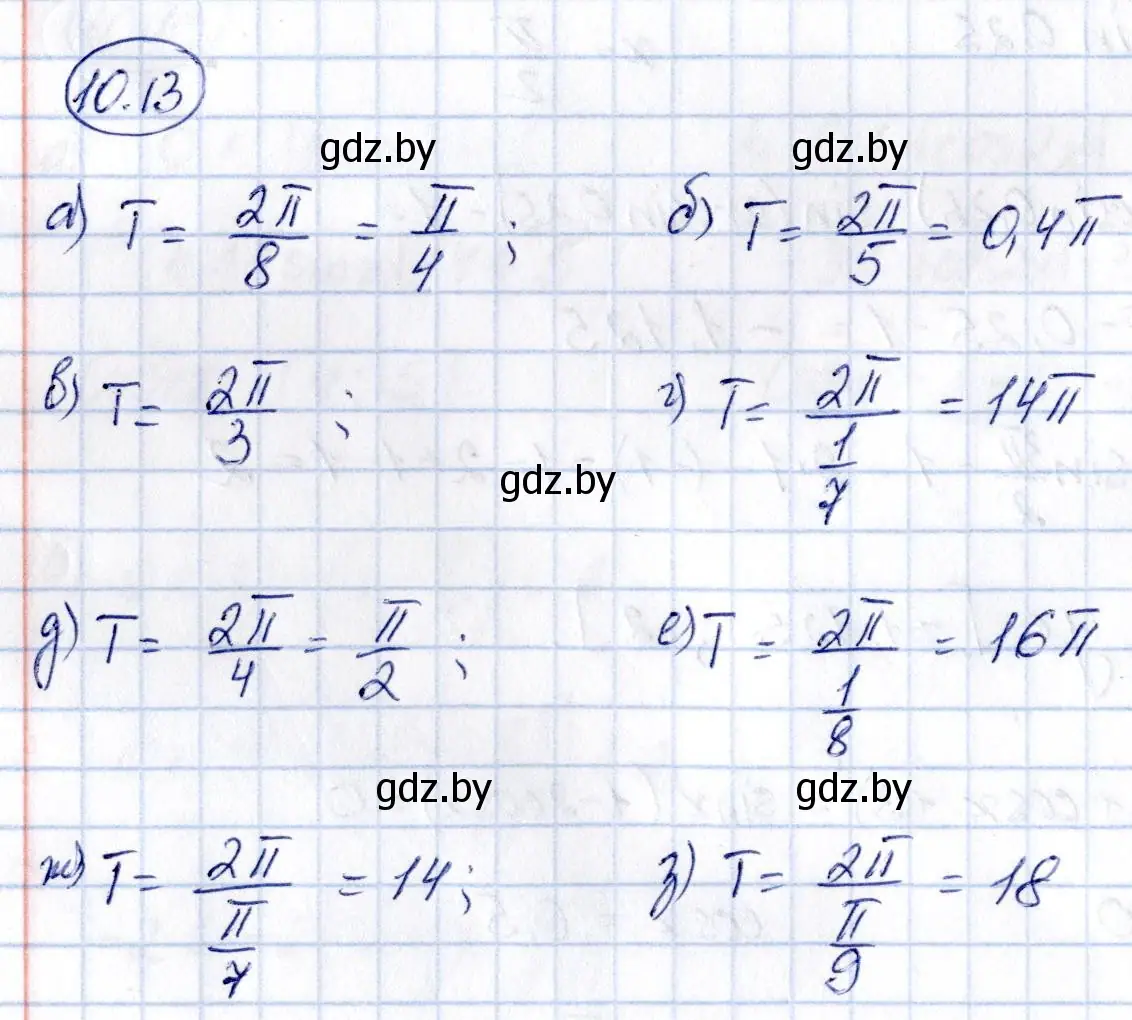 10.13
gdz.by gdz.by
а) T = 2π/8 = π/4 ; б) T = 2π/5 = 0,4π
в) T = 2π/3 ; г) T = 2π/(1/7) = 14π
gdz.by
д) T = 2π/4 = π/2 ; е) T = 2π/(1/8) = 16π
gdz.by gdz.by
ж) T = 2π/(π/7) = 14; з) T = 2π/(π/9) = 18